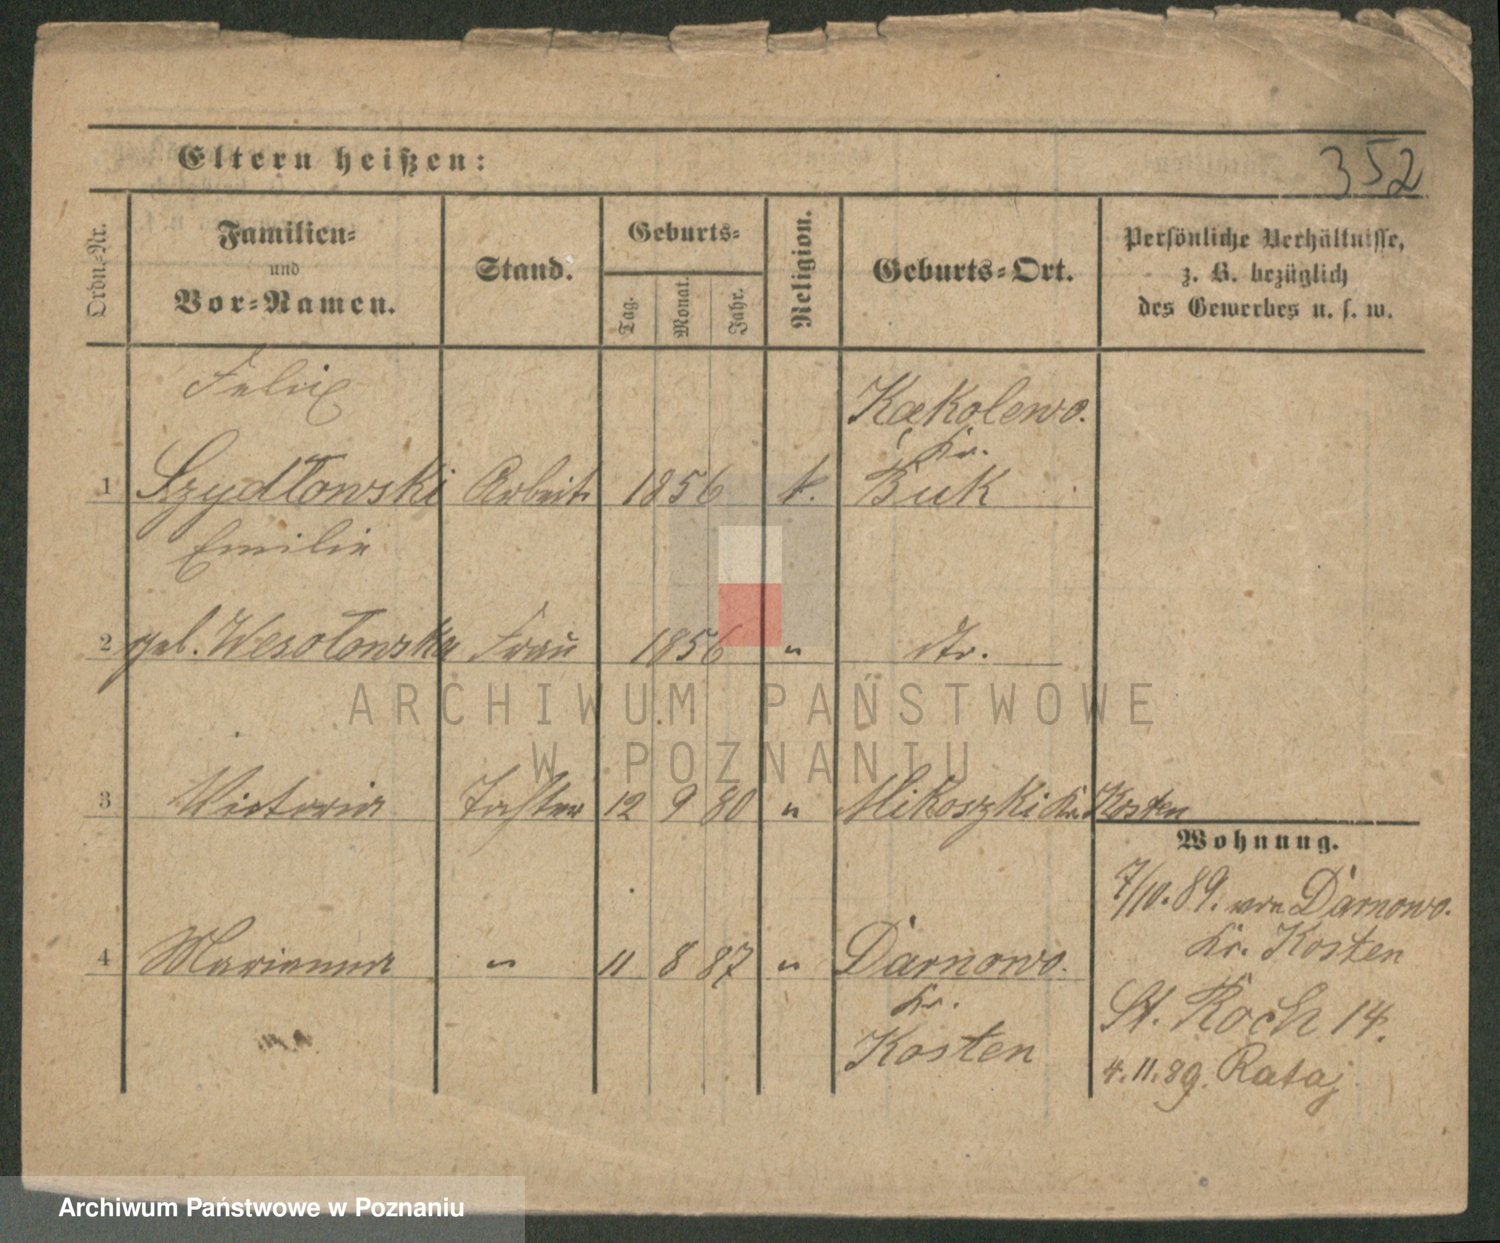 Eltern heißen:
352
Ordn.-Nr.
Familien-
und
Vor-Namen.
Stand.
Geburts-
Tag.
Monat.
Jahr.
Religion.
Geburts-Ort.
Persönliche Verhältnisse,
z. B. bezüglich
des Gewerbes u. s. w.
Felix
Kąkolewo.
Kr.
1 Szydłowski Arbeit. 1856 k. Buk
Emilie
2 geb. Wesołowska Frau 1856 " dto.
3 Victoria Tochter 12 9 80 " Mikoszki Kr. Kosten
Wohnung.
7/10. 89. von Darnowo.
Kr. Kosten
4 Marianna " 11 8 87 " Darnowo.
Kr.
Kosten
St. Roch 14.
4.11.89. Rataj
ARCHIWUM PAŃSTWOWE
W POZNANIU
Archiwum Państwowe w Poznaniu